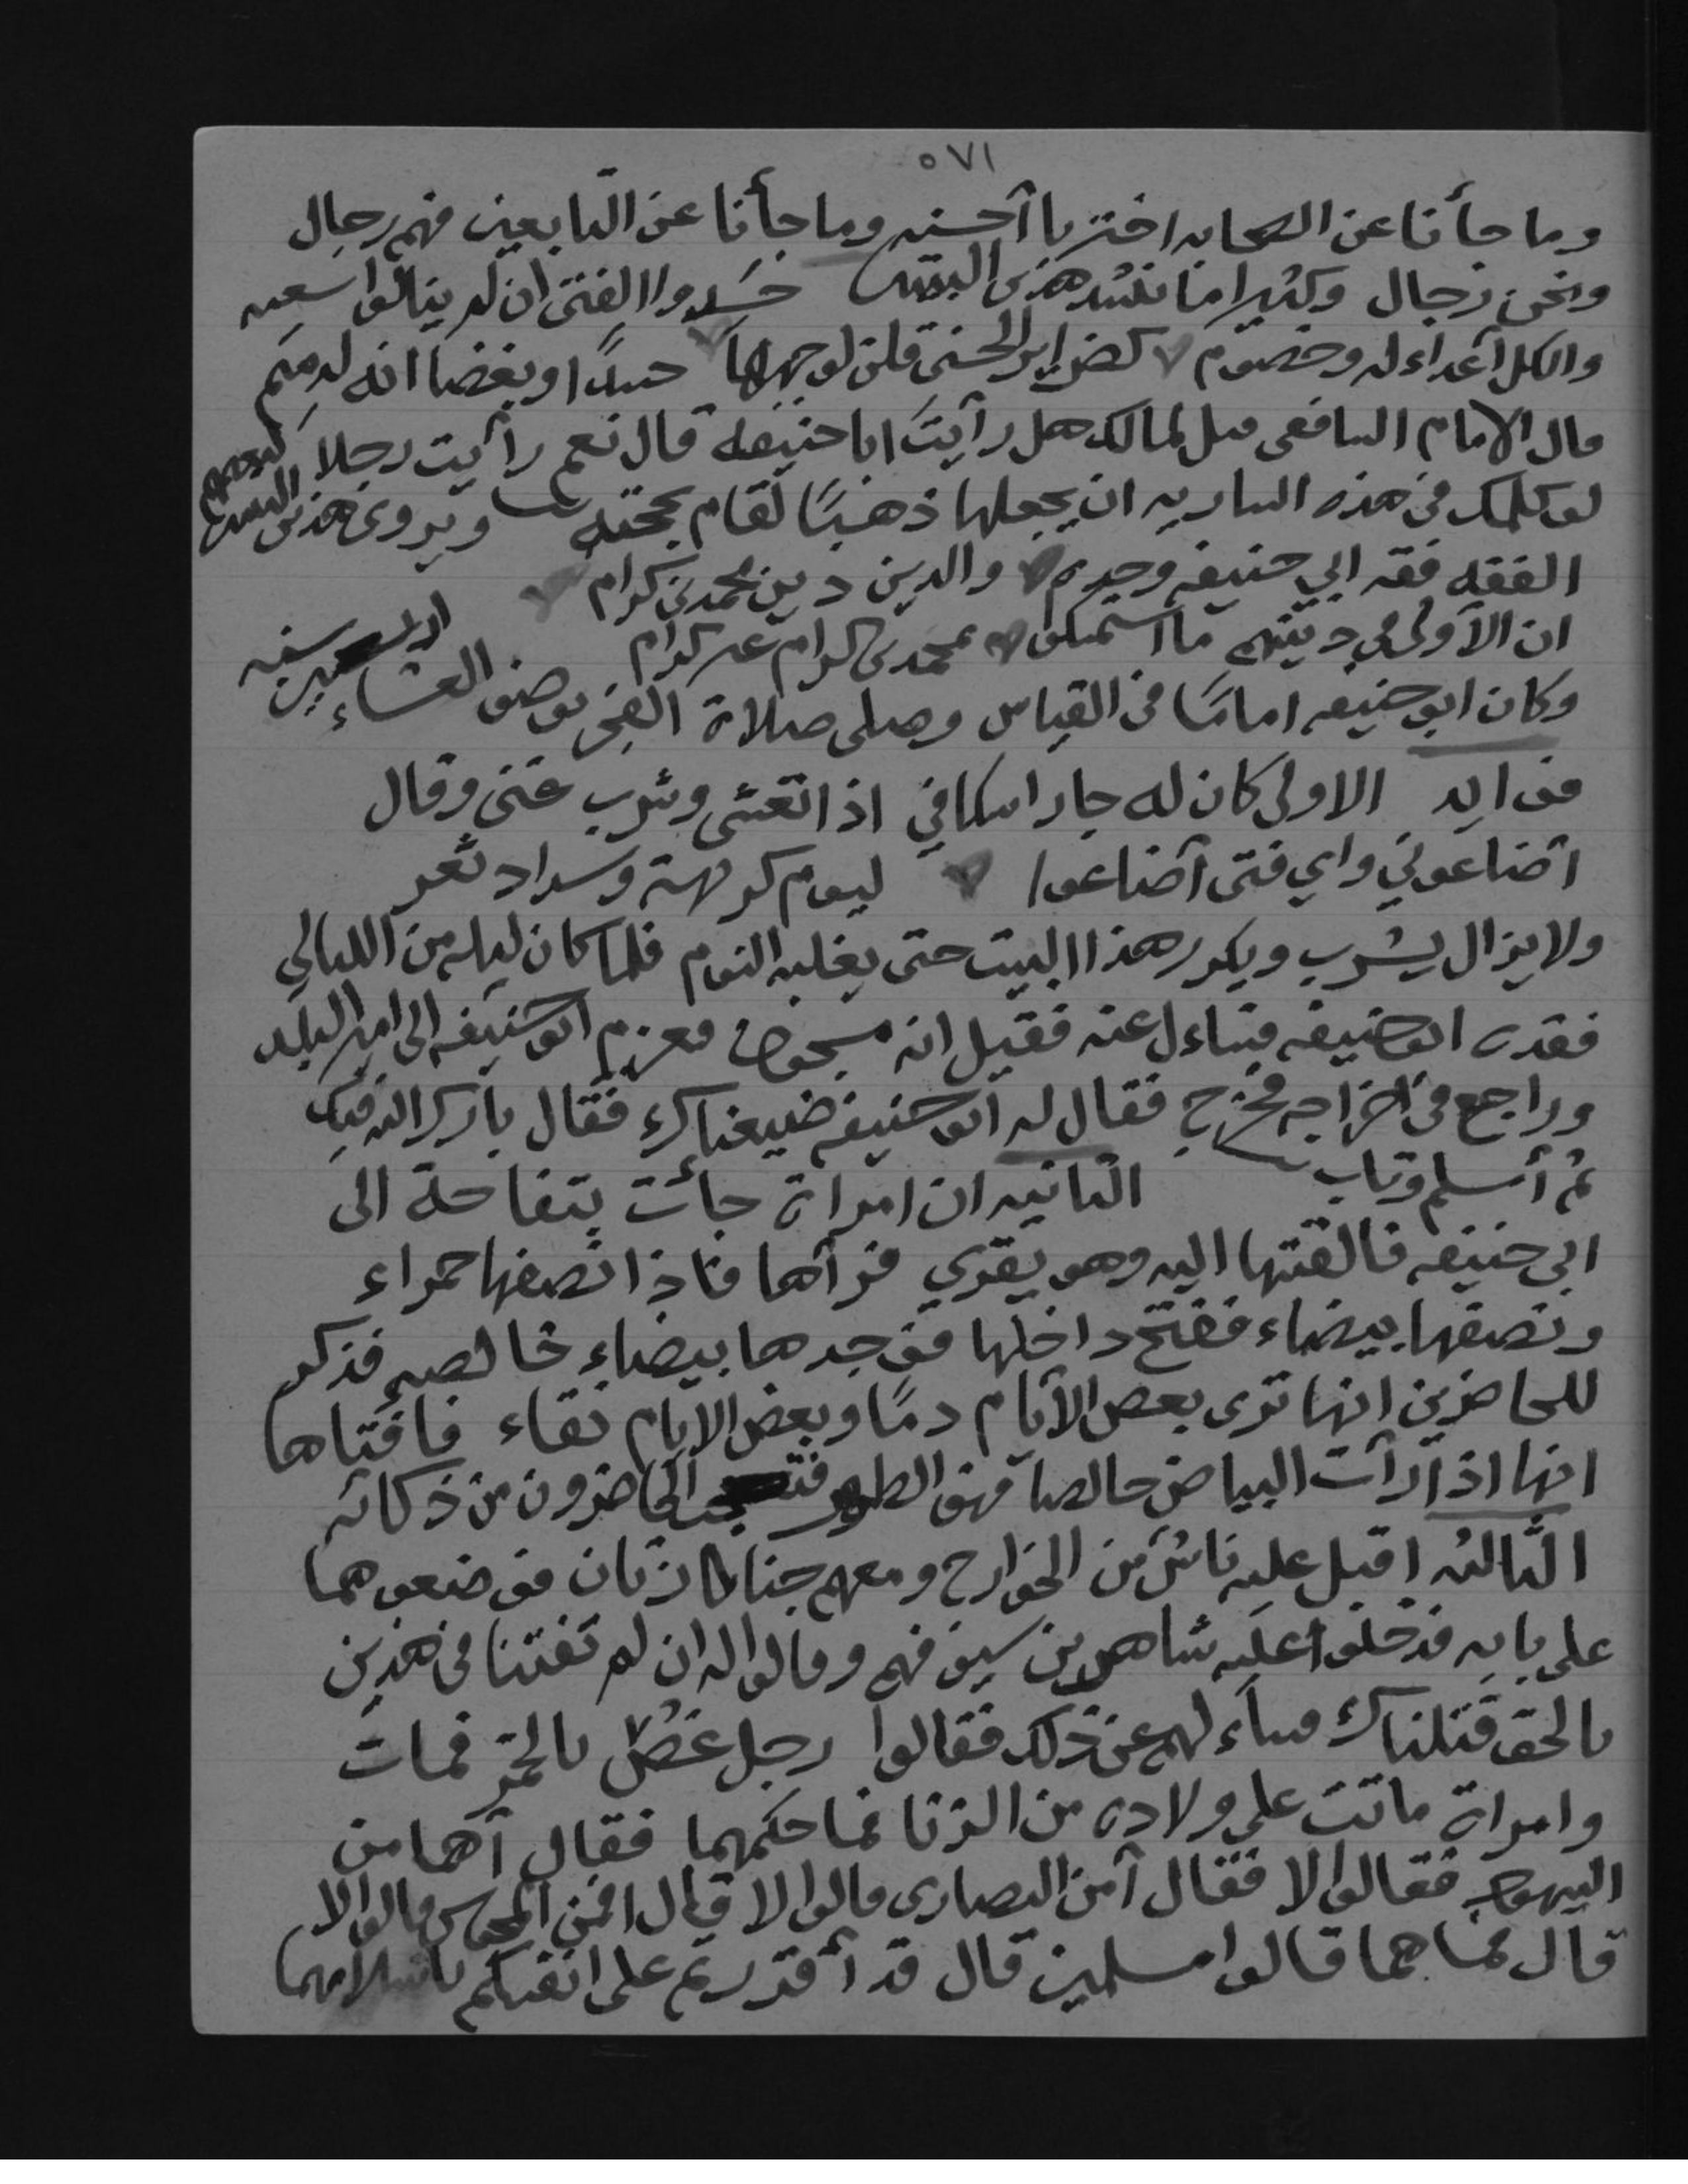 ٥٧١
وما جأنا عن الصحابه اخترنا آحسنه وما جأنا عن التابعين فهم رجال
ونحن رجال وكثيرا ما ننشد هذين البيتين حَسَدوا الفتى ان لم ينالوا سعيه
والكل آعداء له وخصوم كضراير الحسنى قلن لوجهها حسدًا وبغضا انه لدميم
قال الامام الشافعي قيل لمالك هل رآيتَ ابا حنيفه قال نعم رآيت رجلا
لو كلمك في هذه الساريه ان يجعلها ذهبًا لقام بحجته ويروى هذين البيتين لبعضهم
الفقه فقه ابي حنيفه وحده والدين دين محمد بن كرام
ان الآولى في دينهم ما استمسكوا بمحمد بن كرام غير كرام
وكان ابو حنيفه امامًا في القياس وصلى صلاة الفجر بوضو العشاء اربعين سنه
فوايد الاولى كان له جار اسكافي اذا تعشى وشرب غنى وقال
آضاعوني واي فتى آضاعوا ليوم كريهة وسداد ثغر
ولا يزال يشرب ويكرر هذا البيت حتى يغلبه النوم فلما كان ليله من الليالي
فقده ابو حنيفه فتساءل عنه فقيل انه مسجون فعزم ابو حنيفه الى امير البلد
وراجع في اخراجه فخرج فقال له ابو حنيفه ضيعناك فقال بارك الله فيك
ثم آسلم وتاب الثانيه ان امراة جأت بتفاحة الى
ابي حنيفه فالقتها اليه وهو يقري فرآها فاذا نصفها حمراء
ونصفها بيضاء ففتح داخلها فوجدها بيضاء خالصه فذكر
للحاضرين انها ترى بعض الآيام دمًا وبعض الايام نقاء فافتاها
انها اذا رآت البياض خالصا فهو الطهر فتعجب الحاضرون من ذكائه
الثالثه اقبل عليه ناس من الخوارج ومعهم جنازتان فوضعوهما
على بابه فدخلوا عليه شاهرين سيوفهم وقالوا له ان لم تفتنا في هذين
بالحق قتلناك فسآلهم عن ذلك فقالوا رجل غصّ بالخمر فمات
وامراة ماتت على ولاده من الزنا فما حكمهما فقال آهما من
اليهود فقالوا لا فقال آمن النصارى قالوا لا قال افمن المجوس قالوا لا
قال فما هما قالوا مسلمين قال قد آقررتم على انفسكم باسلامهما